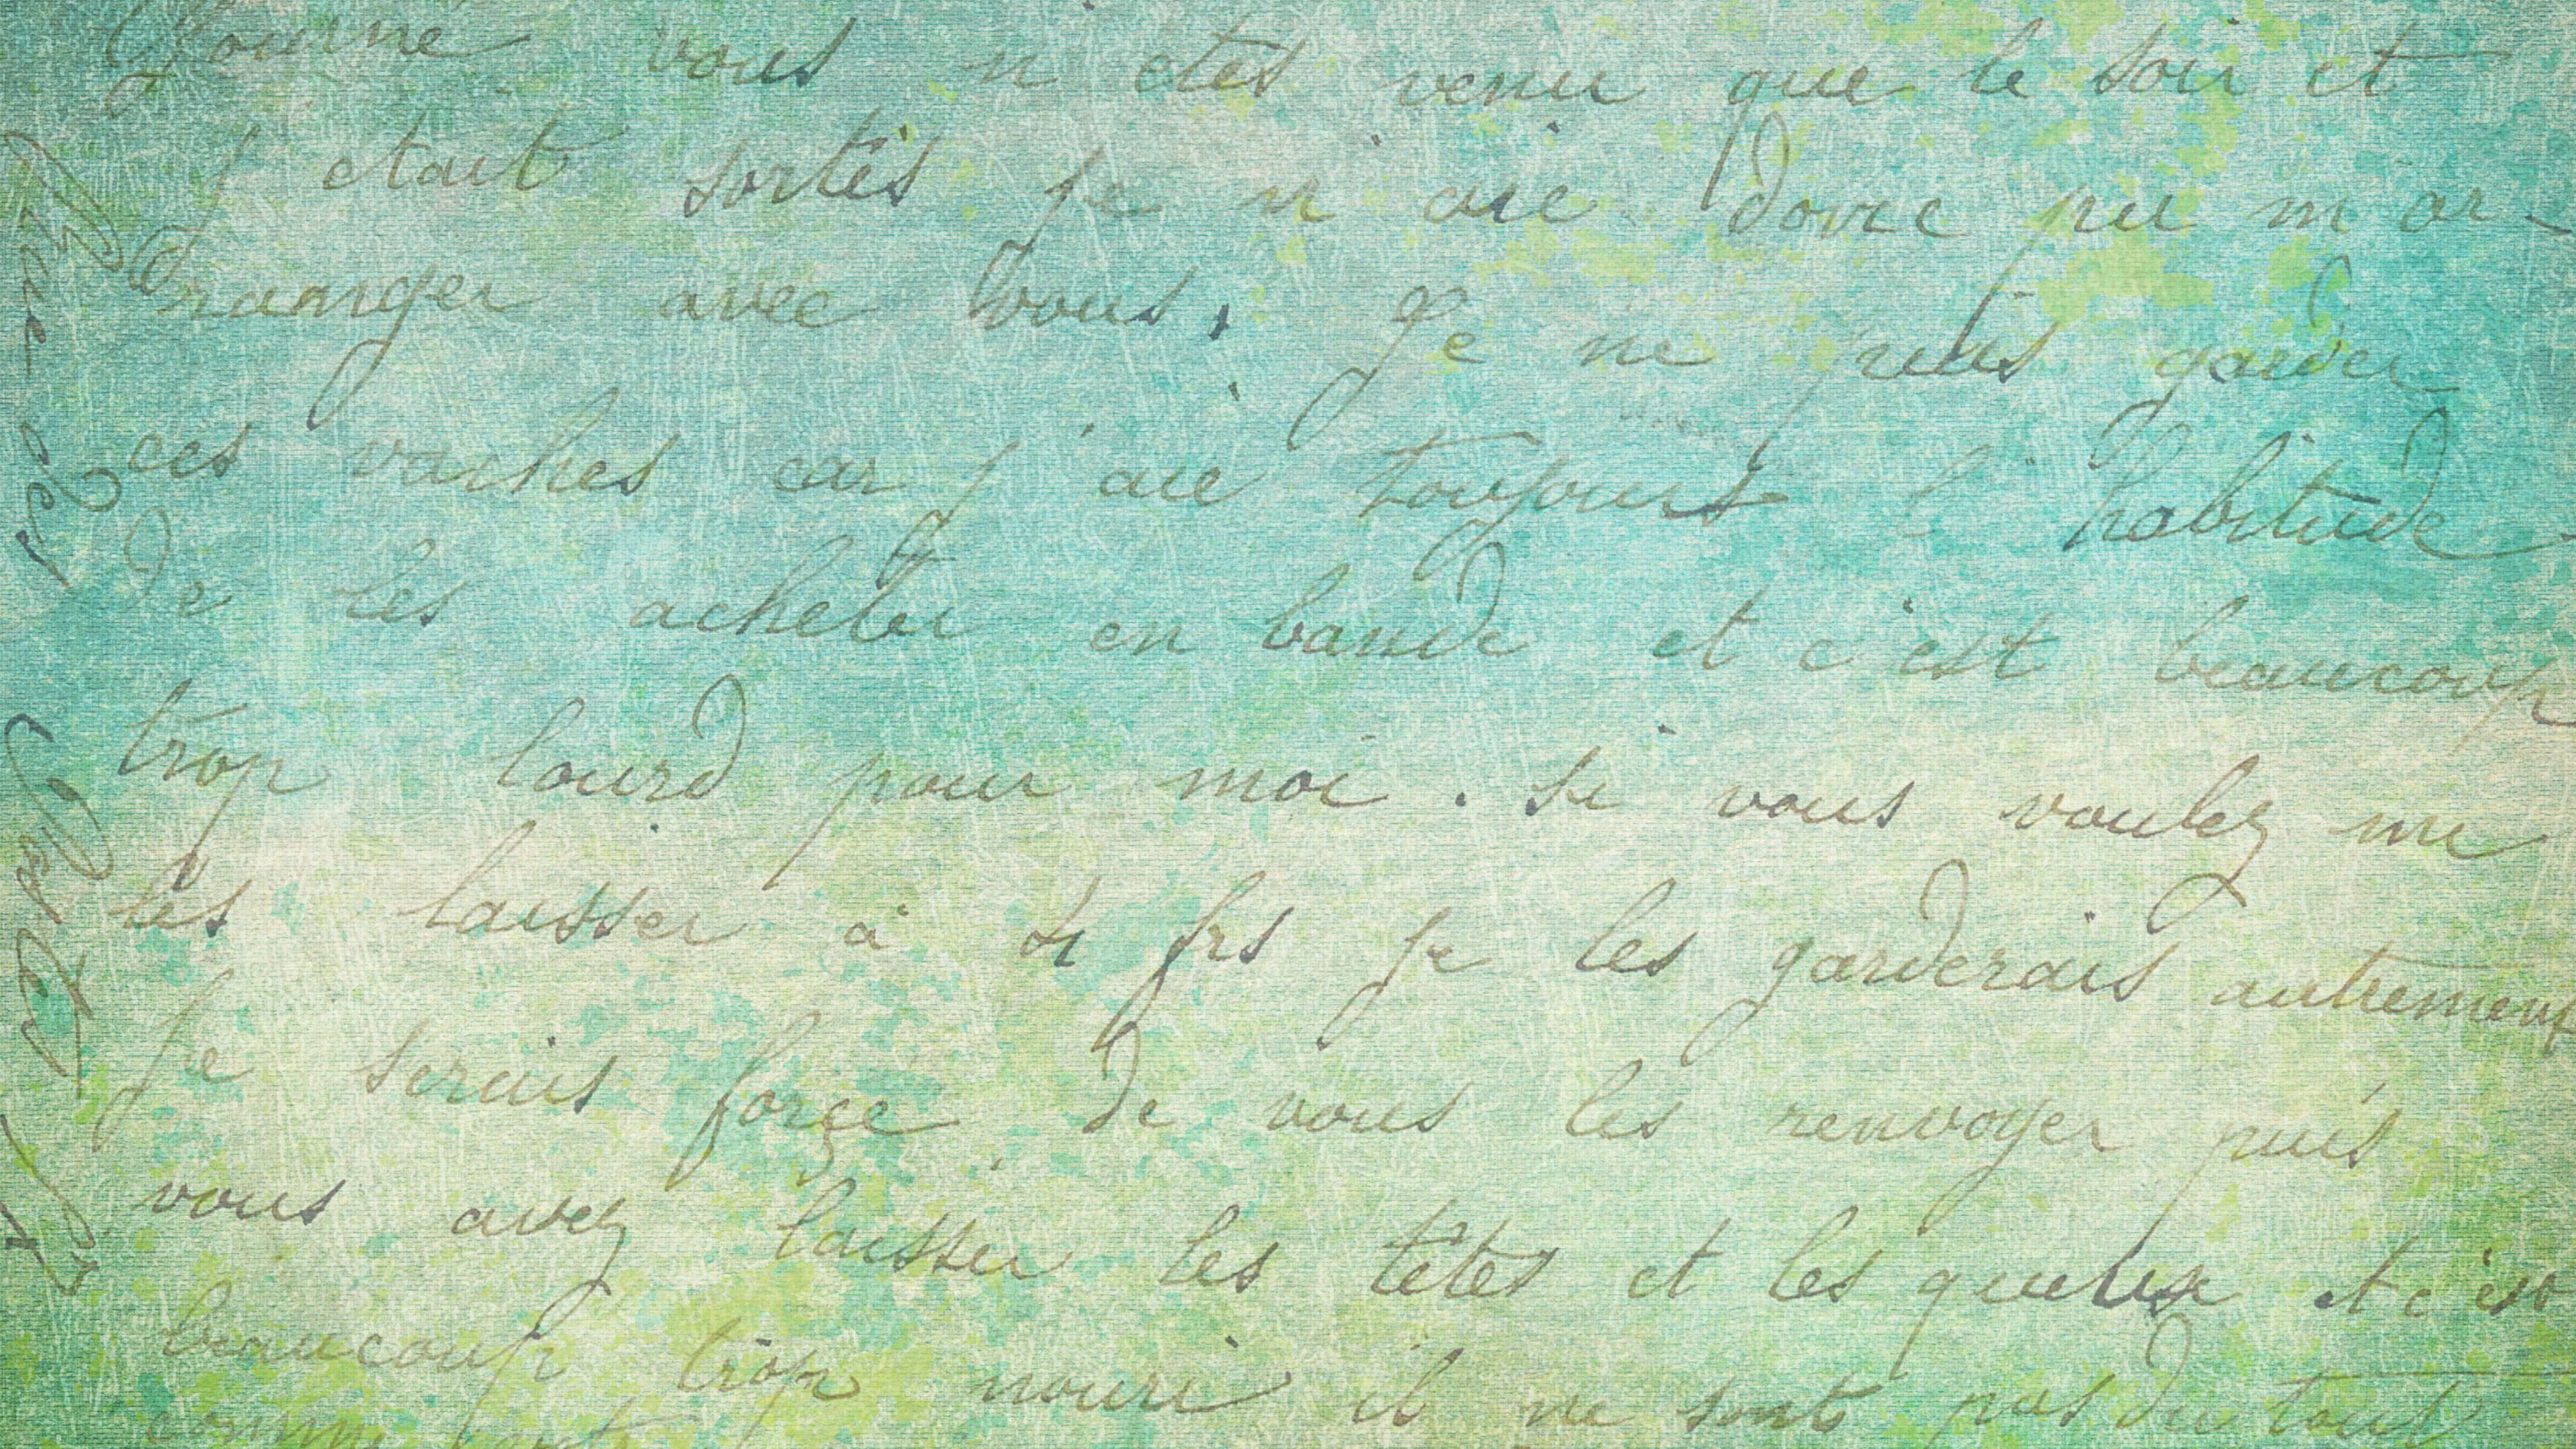 journé vous n'etes venu que le soir et
j'etait sortis je n'aie donc pu m'ar-
ranger avec vous. Je ne puis garder
ces vaches car j'aie toujours l'habitude
de les acheter en bande et c'est beaucoup
trop lourd pour moi. Si vous voulez me
les laisser à frs je les garderais autrement
je serais force de vous les renvoyer puis
vous avez laisser les têtes et les queux et c'est
beaucoup trop nouri il ne sont pas du tout
Rue des